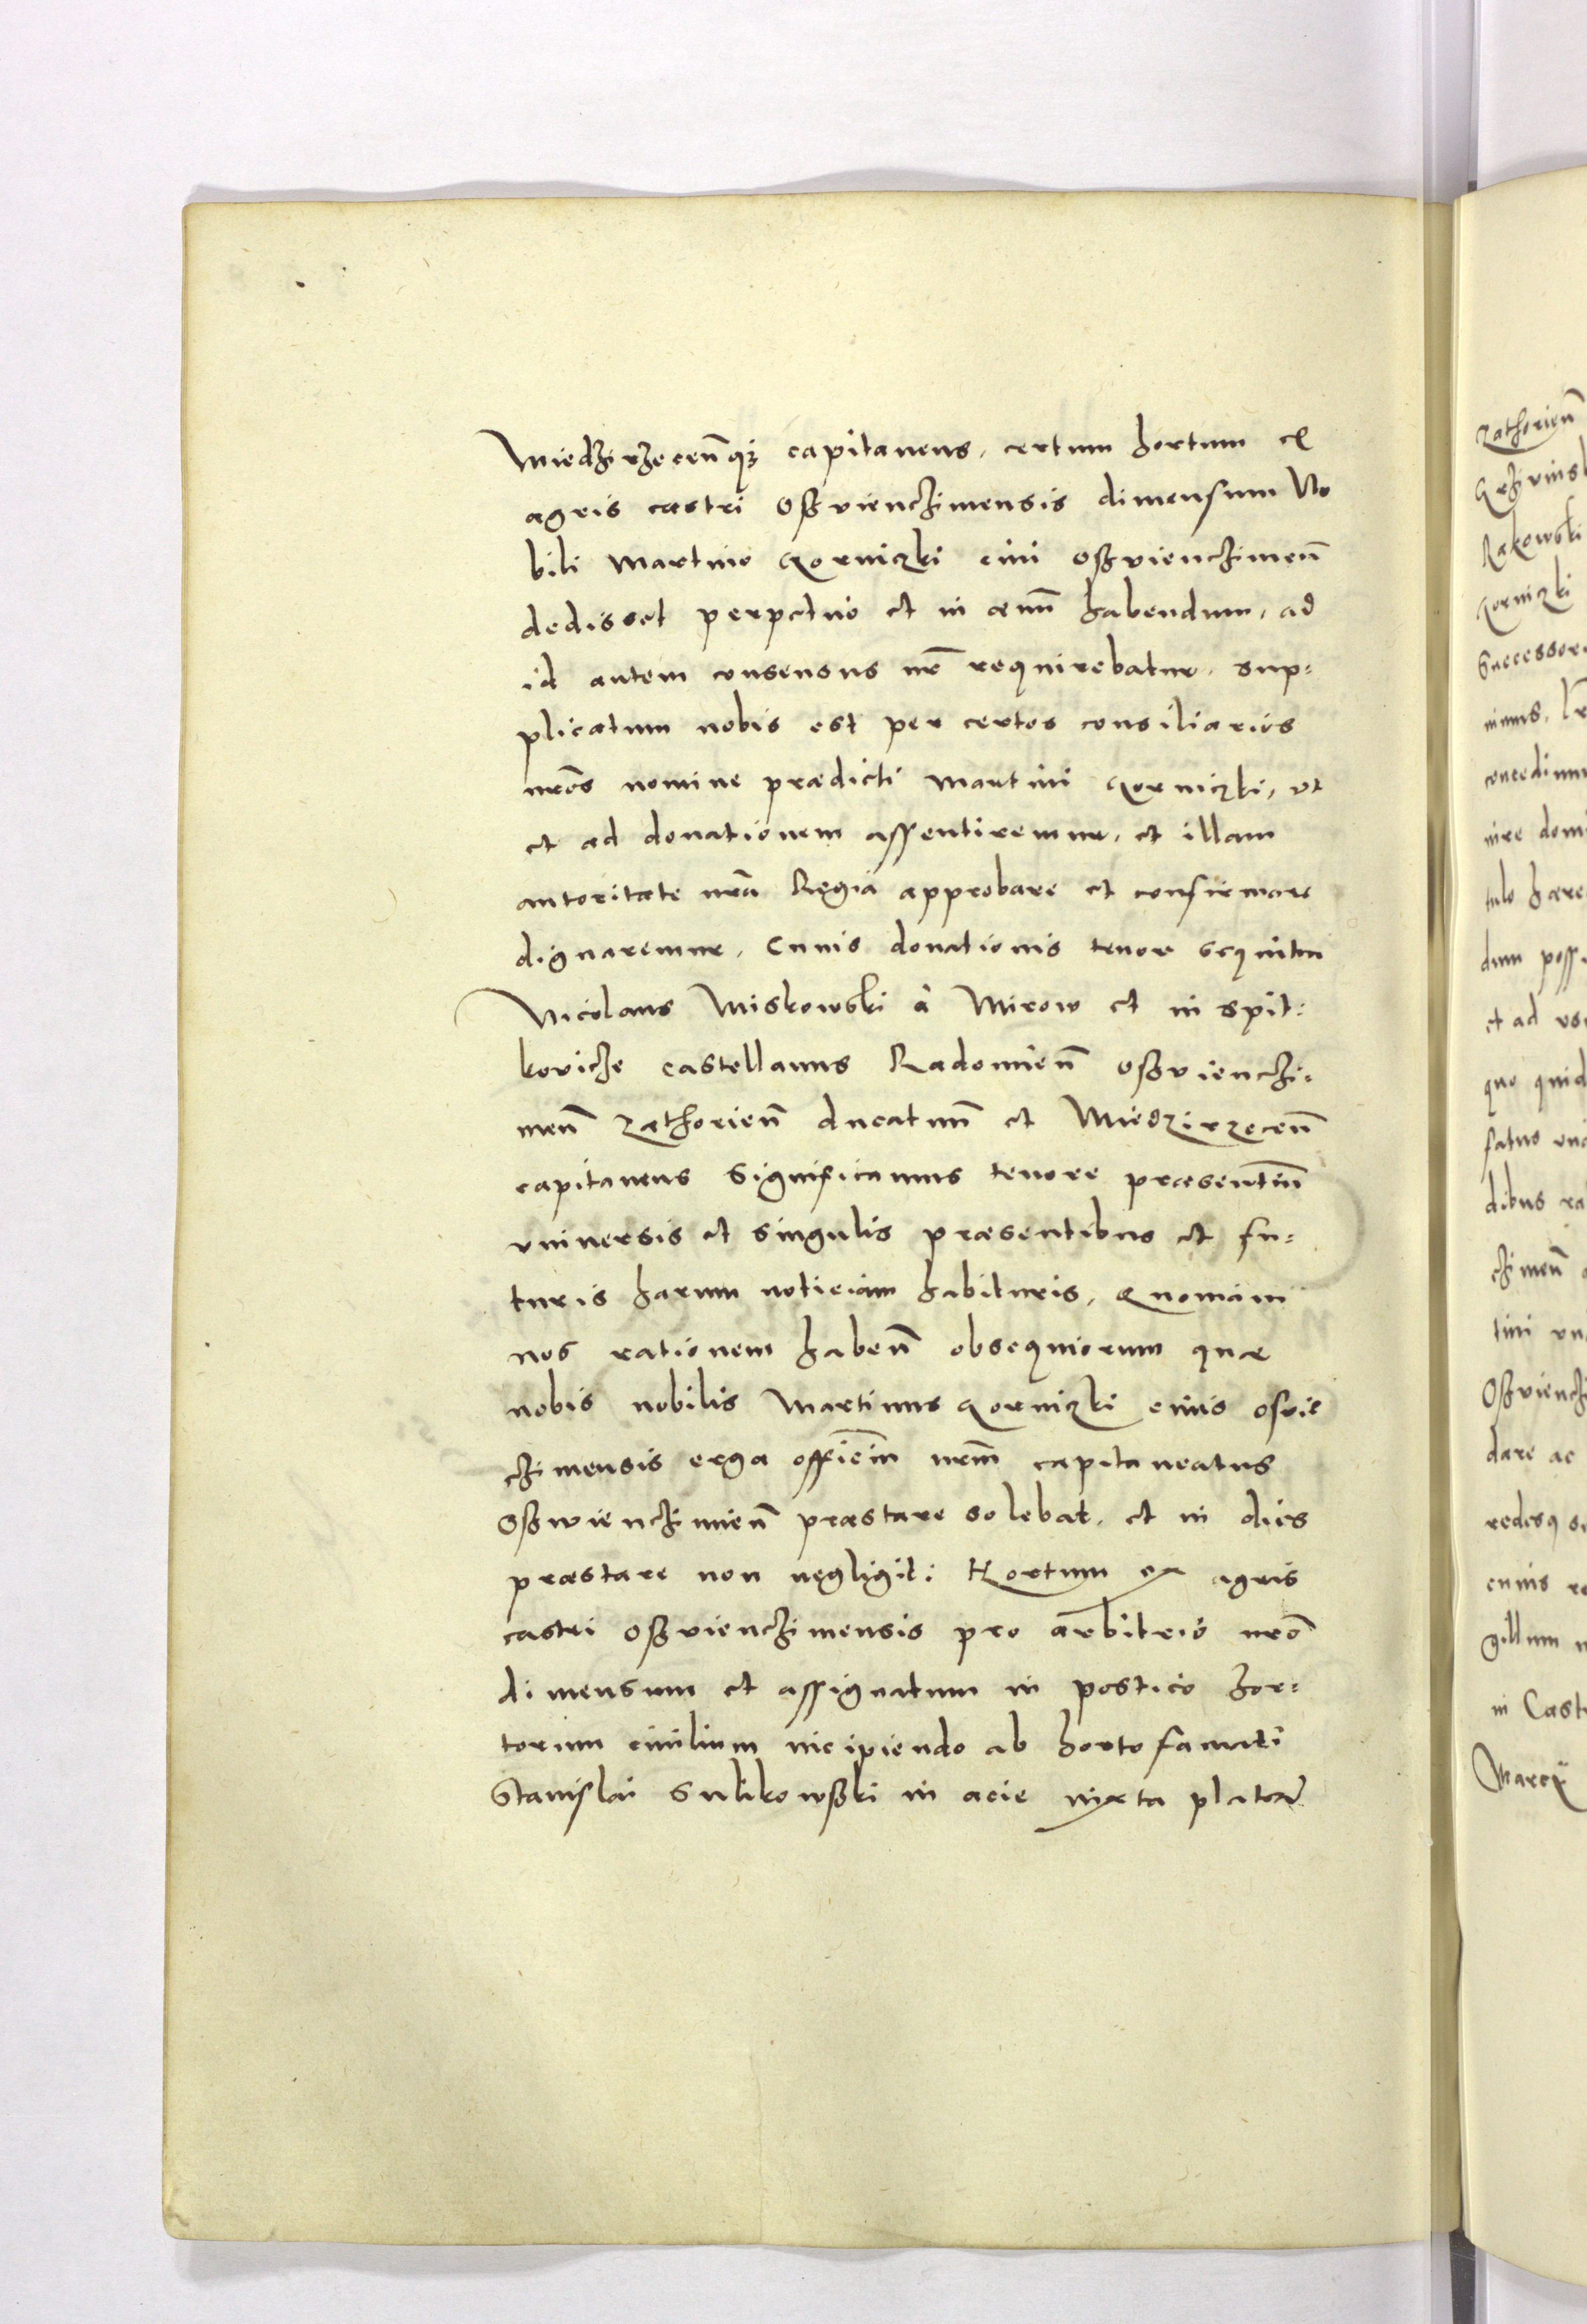 Miedzirzecen̄qꝫ capitaneus, certum hortum ex
agris castri Oßvienchimensis dimensum No
bili Martino Gorniczki ciui Oßvienchimen̄
dedisset perpetuo et in aeuū habendum, ad
id autem consensus nr̄ requirebatur, sup=
plicatum nobis est per certos consiliarios
nrōs nomine praedicti Martini Gorniczki, vt
et ad donationem assentiremur, et illam
autoritate nrā Regia approbare et confirmare
dignaremur, Cuuis donationis tenor sequitur
Nicolaus Miskowski à Mirow et in Spit=
koviche castellanus Radomien̄ Oßvienchi=
men̄ Zathorien̄ ducatuū et Miedzirzecen̄
capitaneus Significamus tenore praesentiū
vniuersis et singulis praesentibus et fu=
turis harum noticiam habituris, Quoniam
nos rationem haben̄ obsequiorum quae
nobis nobilis Martinus Gorniczki ciuis Osvie
chimensis erga officiū nrm̄ capitaneatus
Oßwienchimien̄ praestare solebat, et in dies
praestare non negligit: Hortum ex agris
castri Oßvienchimensis pro arbitrio nrō
dimensum et assignatum in postico hor=
torum ciuilium incipiendo ab horto famati
Stanislai Sulikowßki in acie iuxta plateā
Zathorien̄
Rakowski
Gorniczki
Successori
concedimu
et ad vsu
quo quid
dibus
chimen̄
Oßvienchi
dare ac
cuius
gillum
in Cast
Marcÿ